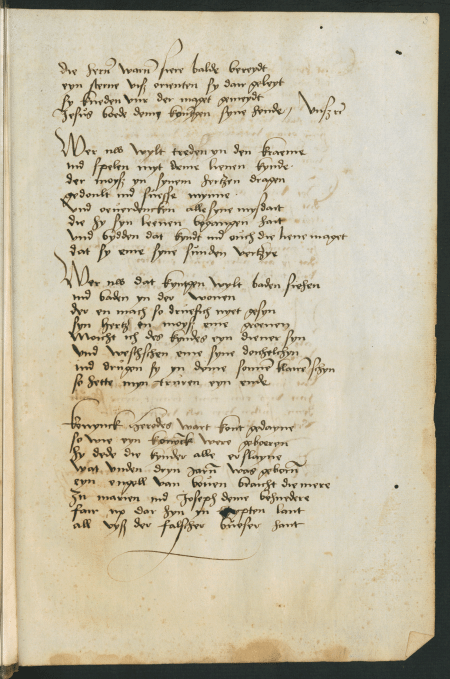 die hern warn siere balde bereydt
eyn sterne uiß orienten sy dair geleyt
sy knieden vur der maget gemeydt
Jesus boede deme konyngen syne hende /

Wer nw wylt treden yn den kraeme
ind spelen myt deme lieven kynde
der moyß yn synem hertzen dragen
gedoult ind suesse mynne
und overdencken alle syne mysdait
die hy syn leeven begangen hait
und bydden dat kyndt ind ouch die lieve maget
dat sy eme syne sunden vertzye

Wer nw dat kyntgen wylt baden siehen
ind baden yn der wonen
der en mach so druefich nyet gesyn
syn hertz en moyß eme groenen
Moicht ich des kyndes eyn diener syn
und weschschen eme syne doichelchyn
ind drugen sy yn deme sonnen klaren schyn
so hette myn truren eyn ende

konynck Herodes wart kont gedayne
so wie eyn konynck were geboeren
hy dede die kynder alle erslayne
wat unden dryn jarn was geborn
eyn engell van boven bracht die mere
zu marien ind Joseph deme behuedere
fair up dar hyn yn egypten lant
all uyß der falscher boeser hant